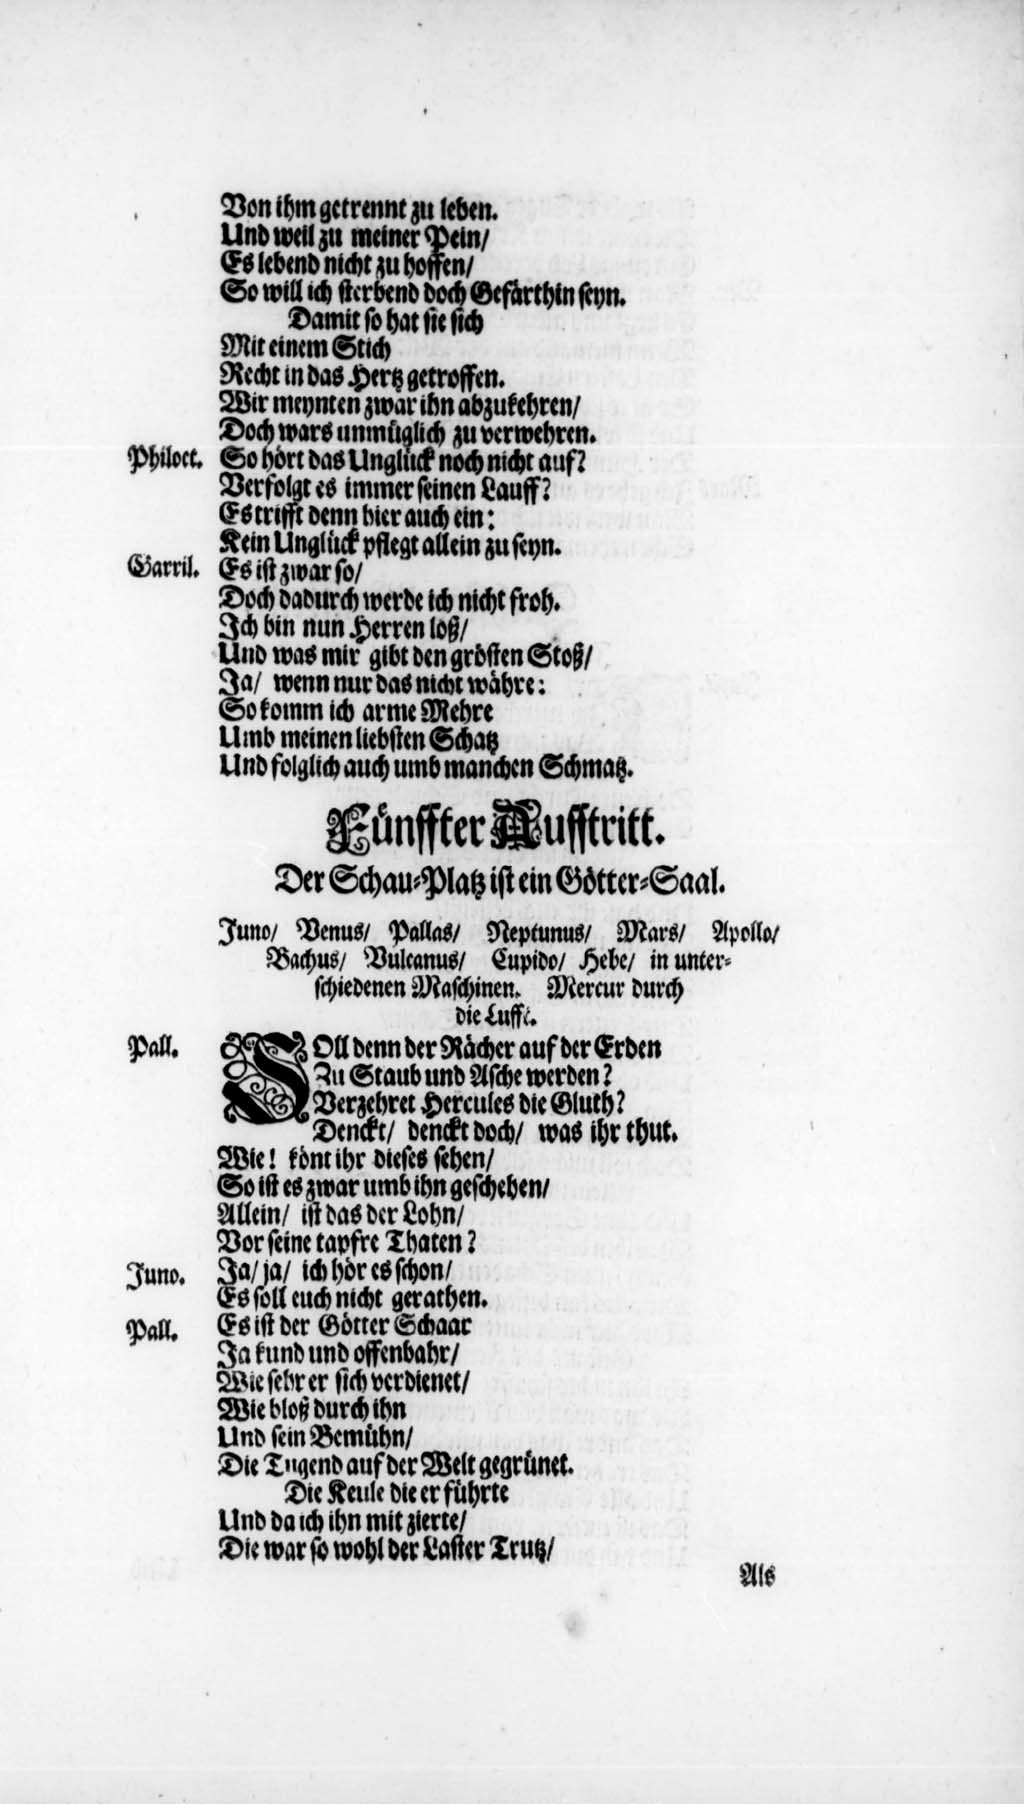 Von ihm getrennt zu leben.
Und weil zu meiner Pein/
Es lebend nicht zu hoffen/
So will ich sterbend doch Gefärthin seyn.
Damit so hat sie sich
Mit einem Stich
Recht in das Hertz getroffen.
Wir meynten zwar ihn abzukehren/
Doch wars unmüglich zu verwehren.
Philoct. So hört das Unglück noch nicht auf?
Verfolgt es immer seinen Lauff?
Es trifft denn hier auch ein:
Kein Unglück pflegt allein zu seyn.
Garril. Es ist zwar so/
Doch dadurch werde ich nicht froh.
Ich bin nun Herren loß/
Und was mir gibt den grösten Stoß/
Ja/ wenn nur das nicht währe:
So komm ich arme Mehre
Umb meinen liebsten Schatz
Und folglich auch umb manchen Schmatz.
Fünffter Aufftritt.
Der Schau-Platz ist ein Götter-Saal.
Juno/ Venus/ Pallas/ Neptunus/ Mars/ Apollo/
Bachus/ Vulcanus/ Cupido/ Hebe/ in unter-
schiedenen Maschinen. Mercur durch
die Lufft.
Pall. SOll denn der Rächer auf der Erden
Zu Staub und Asche werden?
Verzehret Hercules die Gluth?
Denckt/ denckt doch/ was ihr thut.
Wie! könt ihr dieses sehen/
So ist es zwar umb ihn geschehen/
Allein/ ist das der Lohn/
Vor seine tapfre Thaten?
Juno. Ja/ ja/ ich hör es schon/
Es soll euch nicht gerathen.
Pall. Es ist der Götter Schaar
Ja kund und offenbahr/
Wie sehr er sich verdienet/
Wie bloß durch ihn
Und sein Bemühn/
Die Tugend auf der Welt gegrünet.
Die Keule die er führte
Und da ich ihn mit zierte/
Die war so wohl der Laster Trutz/
Als